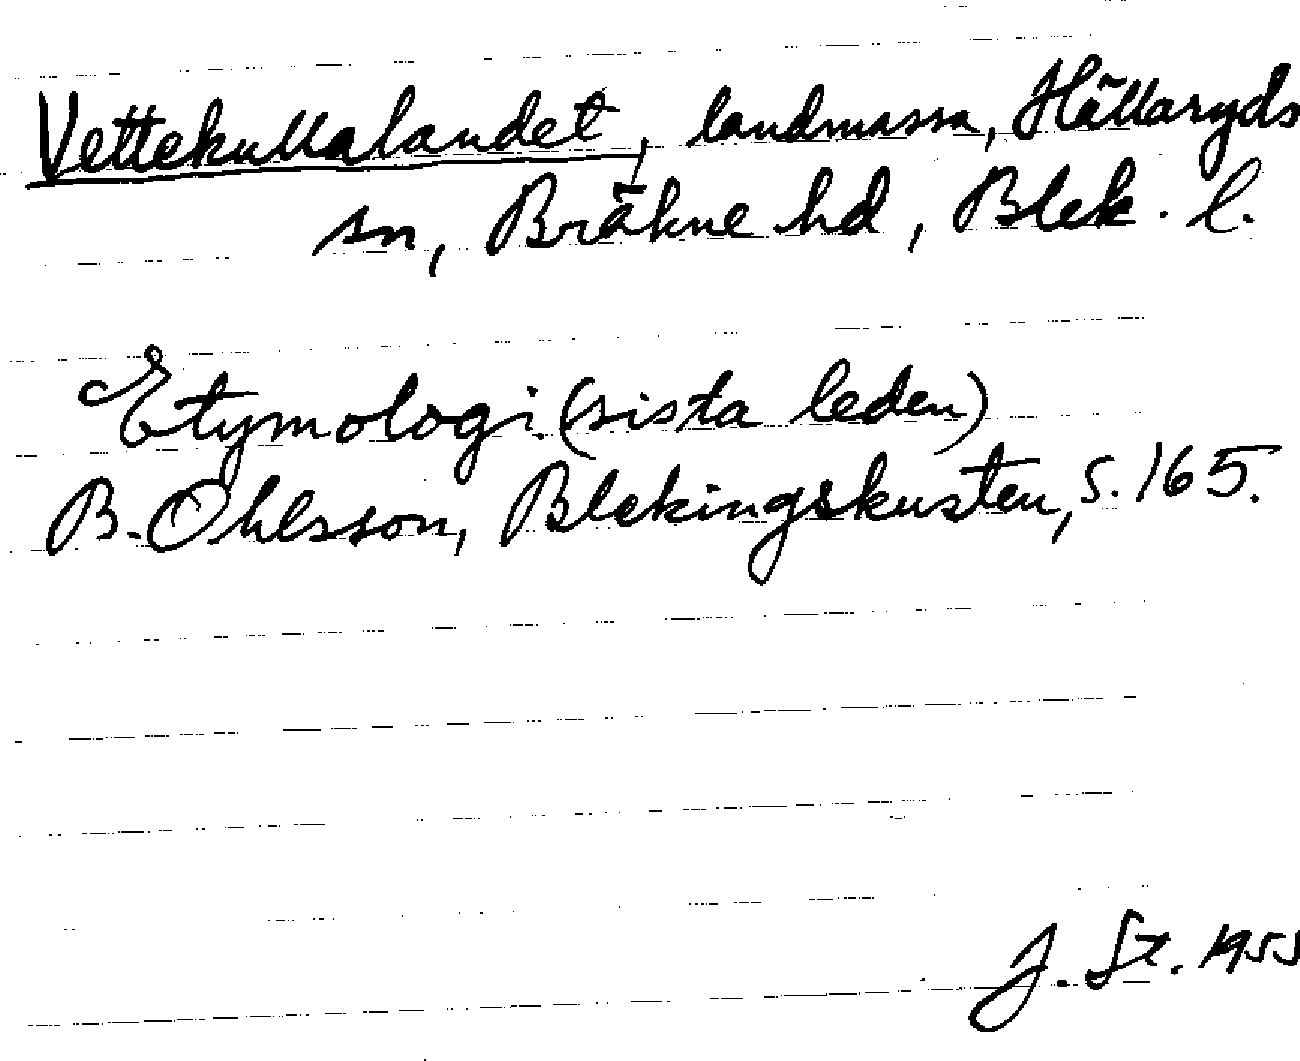 Vettekullalandet, landmassa, Hällaryds
sn, Bräkne hd, Blek. l.
Etymologi (sista leden)
B. Ohlsson, Blekingskusten, s. 165.
J. St. 1955